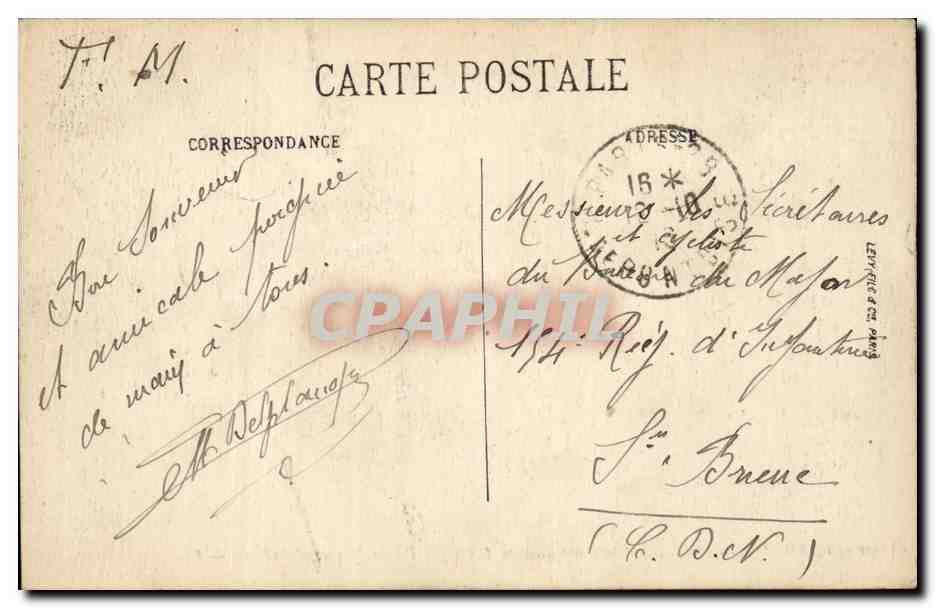 F. M.
CARTE POSTALE
CORRESPONDANCE
ADRESSE
Bon Souvenir
et amicale poignée
de main à tous.
M Deplanque
16 *
-10
Messieurs les Secrétaires
et cycliste
du Bureau du Major
154e Rég. d'Infanterie
St Brieuc
(C. D. N.)
LEVY FILS & Cie. PARIS
CPARPHIL